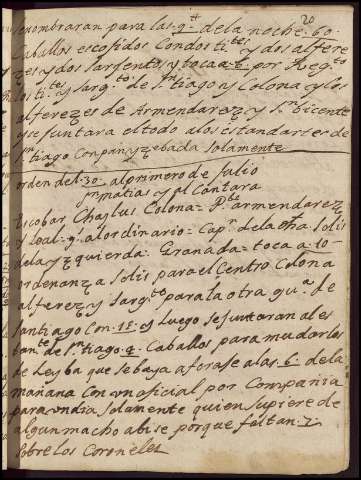 20
se nombraran para las 9 de la noche 60
Caballos escojidos Con dos tites y dos alfere
zes y dos sargentos y toca a 6 por Regto
los tites y sargto de sntiago y Colona y los
alferezes de Armendarez y sn bicente
y se juntara el todo a los estandartes de
sntiago Con pan y zebada solamente
orden del 30 al primero de julio
sn matias y alcantara
Escobar Chaylus Colona = Pte armendarez
y Leal = al ordinario = Capn de la otra Solis
de la yzquierda = Granada = toca a 10
ordenanza Solis para el Centro Colona
alferez y sargto para la otra gua de
santiago Con 15 y luego se juntaran al es
tante de sntiago 4 Caballos para mudar los
de Leyba que se baya a forase a las 6 de la
mañana Con un oficial por Compañia
para un dia solamente quien supiere de
algun macho abise porque faltan 7
sobre los Coroneles